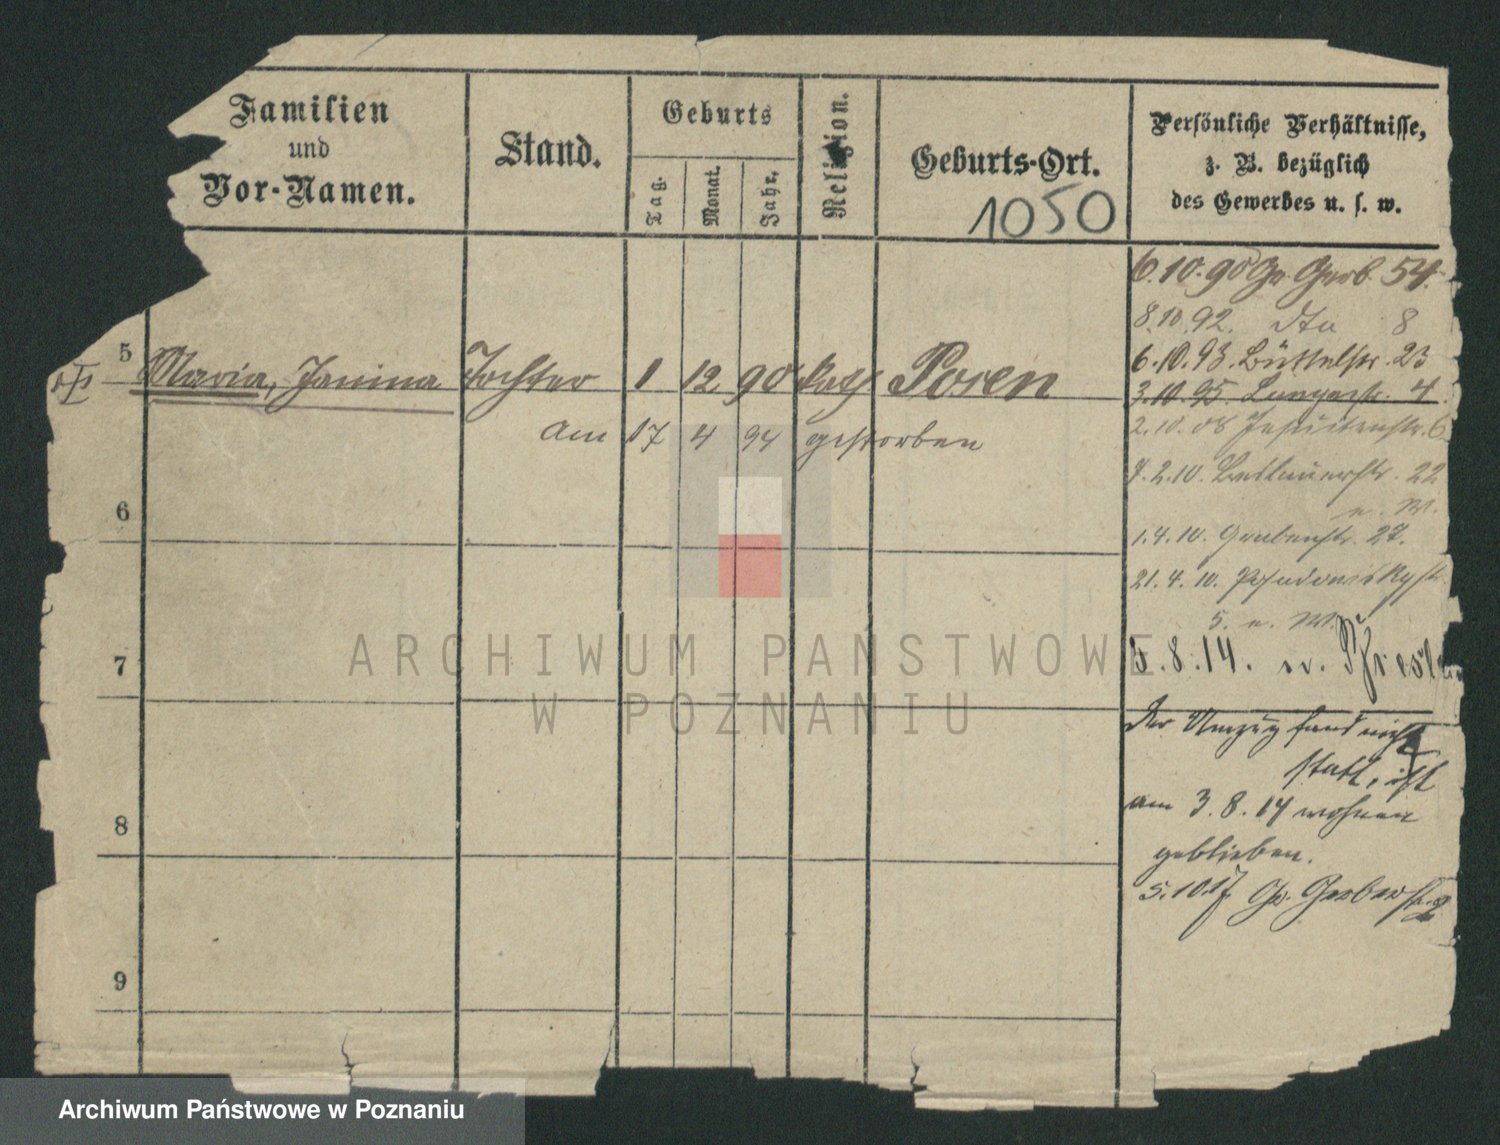 Familien
und
Vor-Namen.
Stand.
Geburts
Tag.
Monat.
Jahr.
Religion.
Geburts-Ort.
1050
Persönliche Verhältnisse,
z. B. bezüglich
des Gewerbes u. s. w.
6.10.90 Gr. Gerb. 54.
8.10.92. dto 8
5
Maria, Janina Tochter 1 12 90 kath Posen
am 17 4 94 gestorben
6.10.93. Büttelstr. 23
3.10.95. Langestr. 4.
2.10.08 Jesuitenstr. 6
7.2.10. 22
u. W.
1.4.10. Grabenstr. 27.
21.4.10. Posadowskystr.
5. u. W.
5.8.14. n.
6
7
8
9
Der Umzug fand nicht
statt, ist
am 3.8.14 wohnen
geblieben.
5.10.17. Gr. Gerberstr. 2
ARCHIWUM PAŃSTWOWE
W POZNANIU
Archiwum Państwowe w Poznaniu